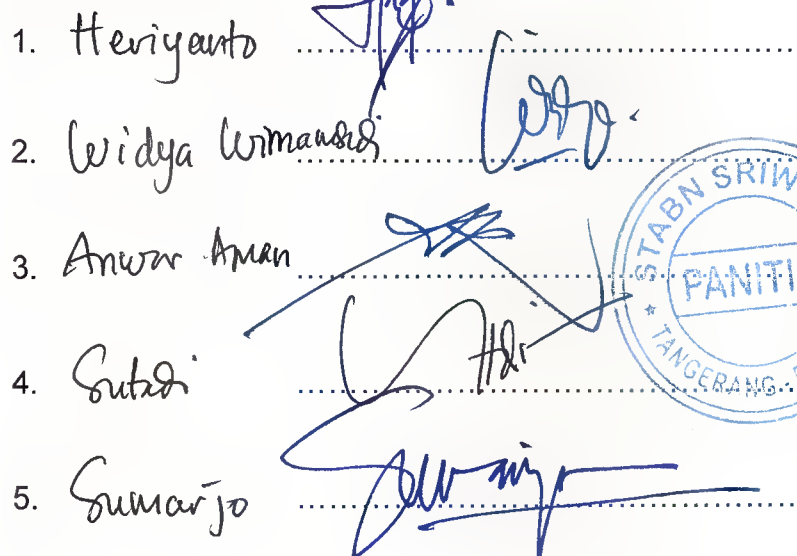 1. Heriyanto
2. Widya Wimawadi
3. Anwar Aman
4. Sutadi
5. Sumarjo
STABN SRIW
PANITI
TANGERANG